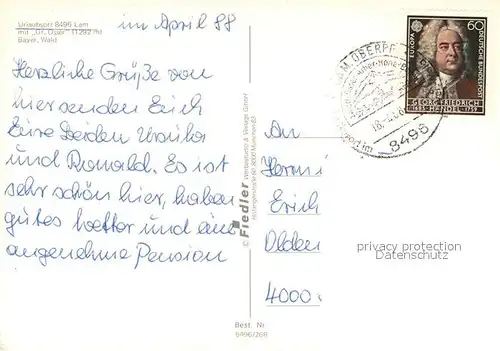 Urlaubsort 8496 Lam
mit "Gr. Osser" (1292 m)
Bayer. Wald
im April 88
Herzliche Grüße von
hier senden Euch
Eure beiden Ursula
und Ronald. Es ist
sehr schön hier, haben
gutes Wetter und eine
angenehme Pension
© Fiedler Werbestudio & Verlags GmbH
8000 München 83
Best. Nr.
8496/268
60
DEUTSCHE BUNDESPOST
EUROPA
GEORG FRIEDRICH
1685 HÄNDEL 1759
8496
An
Erich
4000
privacy protection
Datenschutz